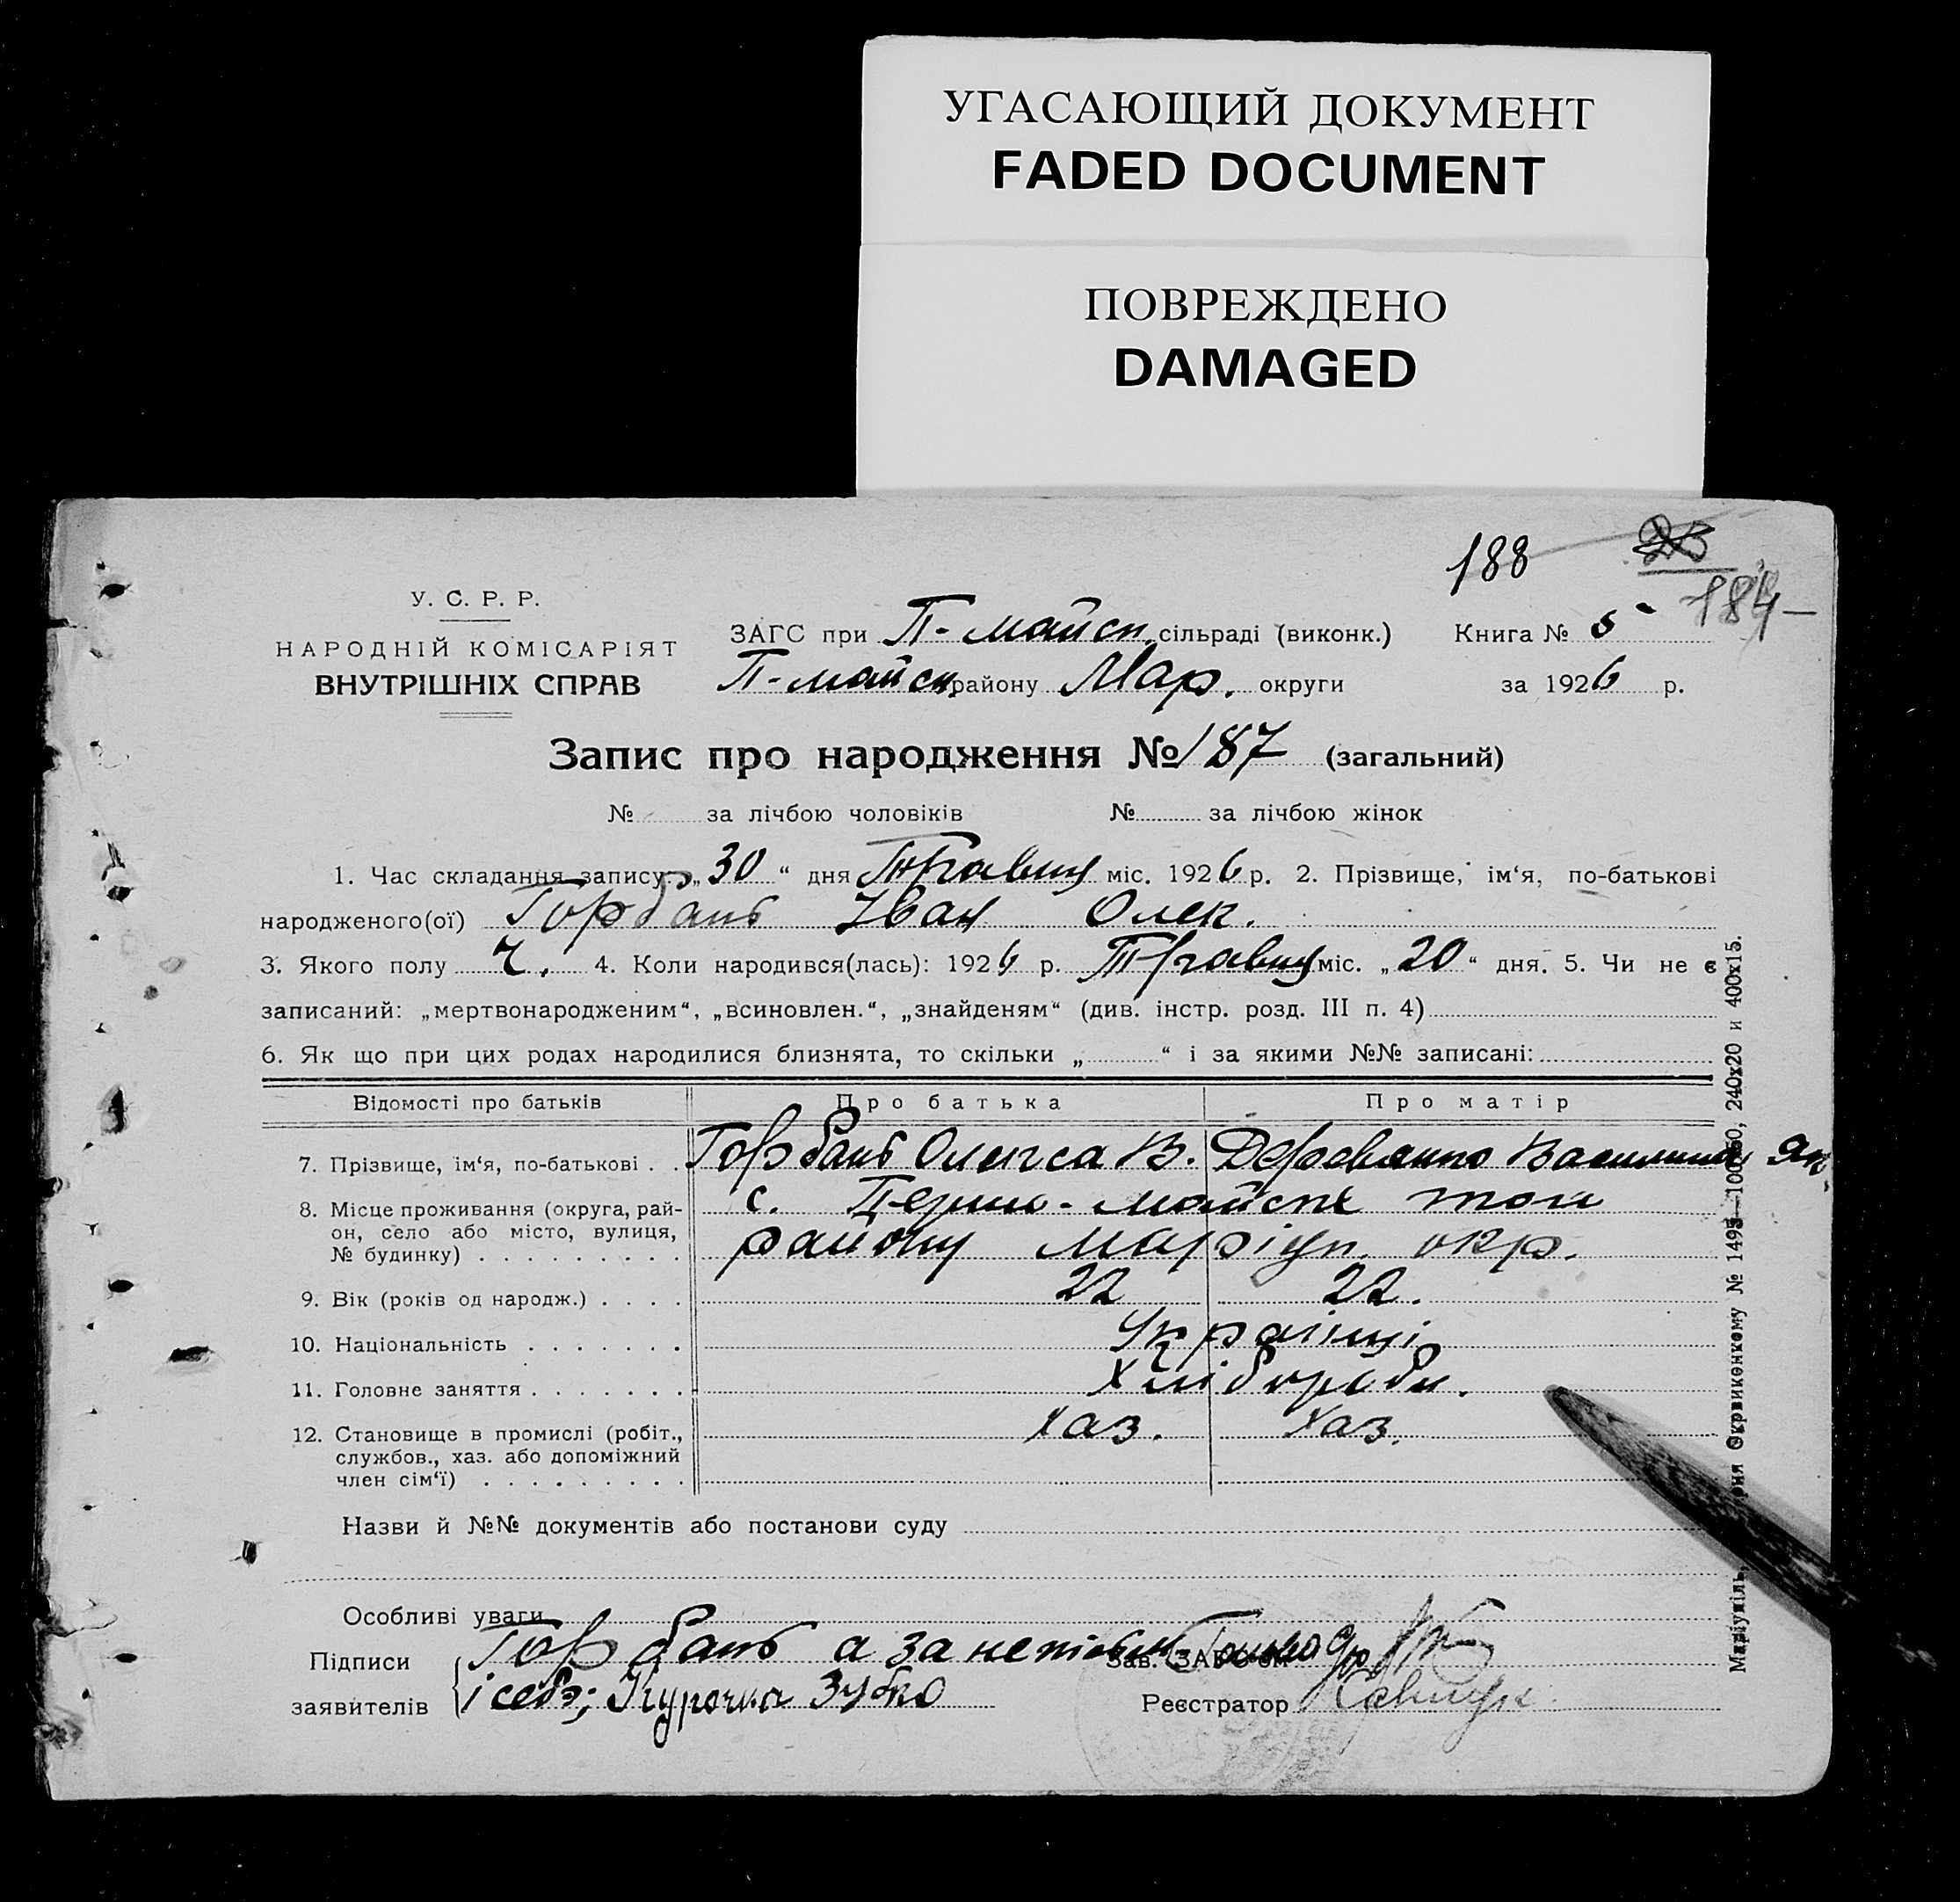 УГАСАЮЩИЙ ДОКУМЕНТ
FADED DOCUMENT
ПОВРЕЖДЕНО
DAMAGED
188
184
У. С. Р. Р.
НАРОДНІЙ КОМІСАРІЯТ
ВНУТРІШНІХ СПРАВ
ЗАГС при П-майськ. сільраді (виконк.) Книга № 5
П-майськ. району Мар. округи за 1926 р.
Запис про народження № 187 (загальний)
№ за лічбою чоловіків № за лічбою жінок
1. Час складання запису: „30“ дня Травня міс. 1926 р. 2. Прізвище, ім‘я, по-батькові
народженого(ої) Горбань Іван Олек.
3. Якого полу ч. 4. Коли народився(лась): 1926 р. Травня міс. „20“ дня. 5. Чи не є
записаний: „мертвонародженим“, „всиновлен.“, „знайденям“ (див. інстр. розд. III п. 4)
6. Як що при цих родах народилися близнята, то скільки „ “ і за якими №№ записані:
Відомості про батьків Про батька Про матір
7. Прізвище, ім‘я, по-батькові . . Горбань Олекса В. Деревянко Василина Як.
8. Місце проживання (округа, рай- с. Першо-майське того
он, село або місто, вулиця, району Маріуп. окр.
№ будинку) . . . . . . . . .
9. Вік (років од народж.) . . . . 22 22.
10. Національність . . . . . . . Українці
11. Головне заняття . . . . . . . Хлібороби.
12. Становище в промислі (робіт., хаз. хаз.
службов., хаз. або допоміжний
член сім‘ї) . . . . . . . . .
Назви й №№ документів або постанови суду
Особливі уваги
Підписи Горбань а за неписьм. Зав. ЗАГС‘ом
заявителів і себе; Курочка Зубко Реєстратор
Маріупіль, Окрвиконкому № 1495—100×50, 240x20 и 400x15.